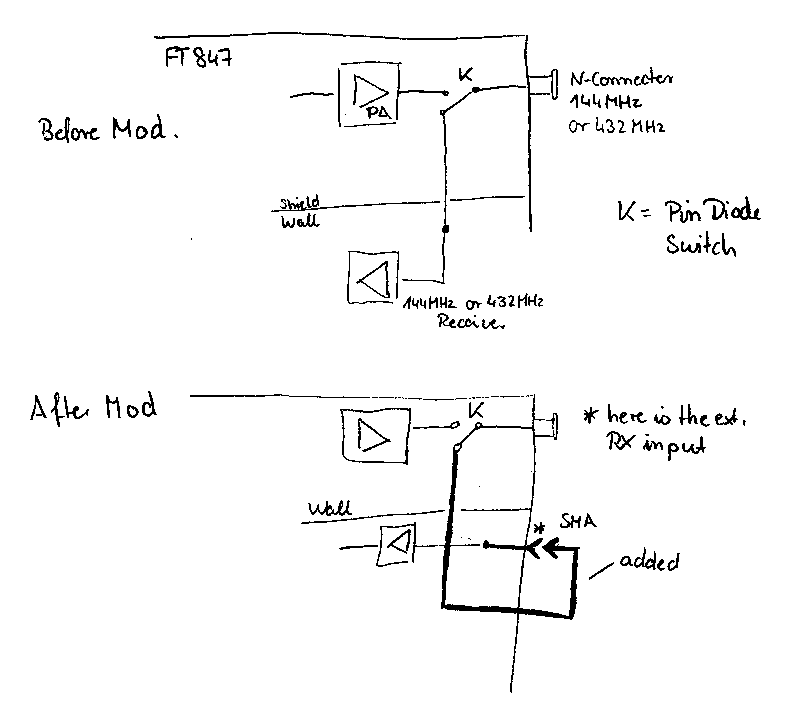 FT847
K
N-Connecter
144MHz
or 432MHz
PA
Before Mod.
Shield
Wall
K = Pin Diode
Switch
144MHz or 432MHz
Receive.
After Mod
K
* here is the ext.
RX input
Wall
* SMA
added